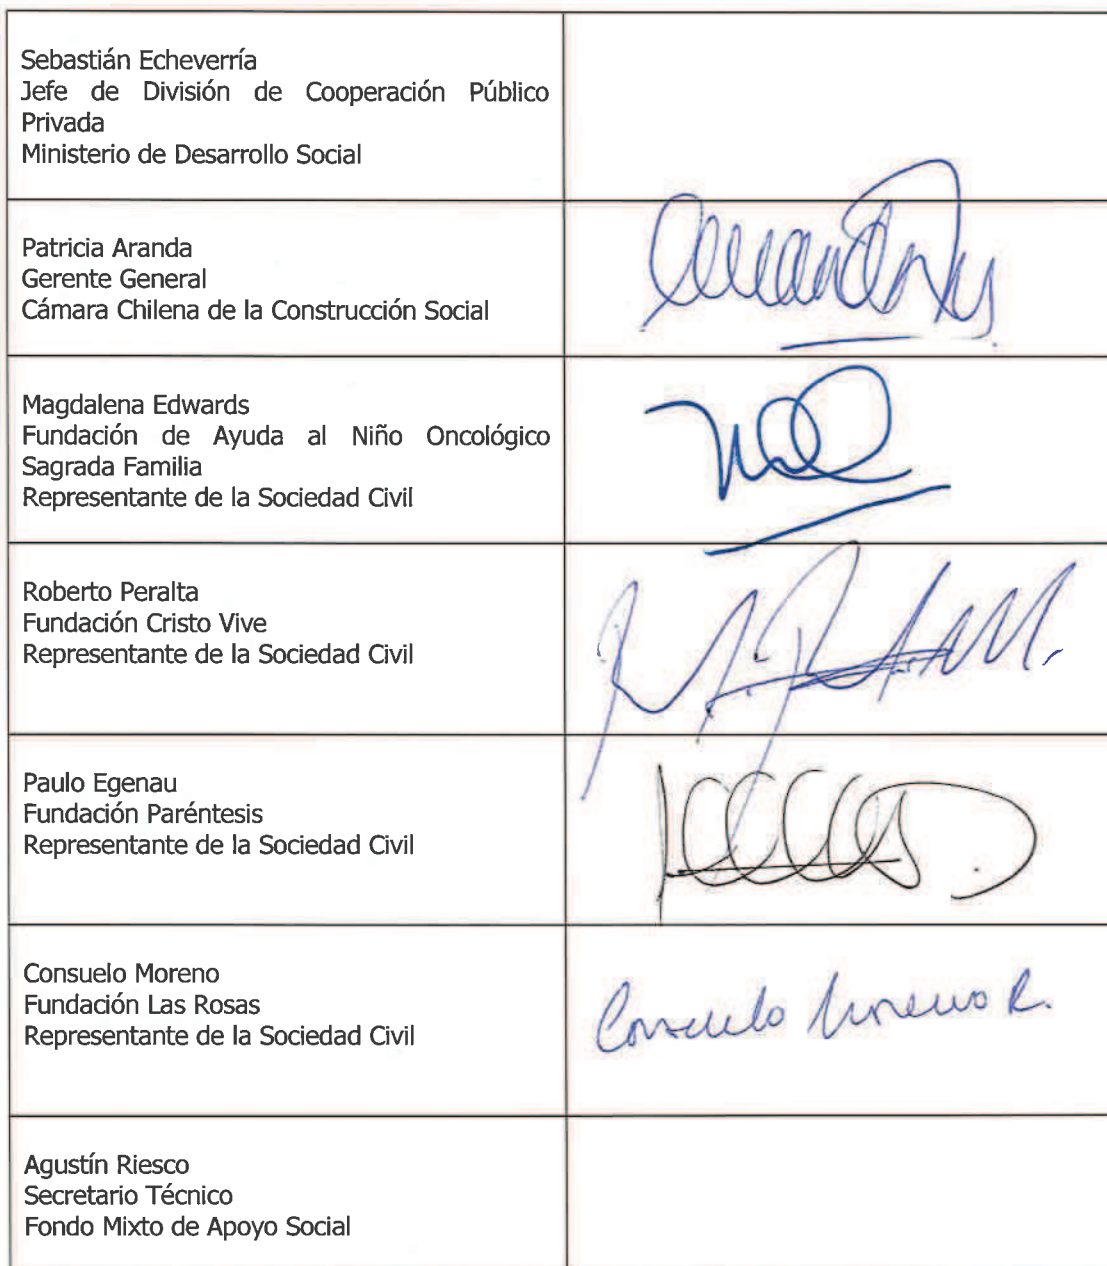 Sebastián Echeverría
Jefe de División de Cooperación Público
Privada
Ministerio de Desarrollo Social
Patricia Aranda
Gerente General
Cámara Chilena de la Construcción Social
Magdalena Edwards
Fundación de Ayuda al Niño Oncológico
Sagrada Familia
Representante de la Sociedad Civil
Roberto Peralta
Fundación Cristo Vive
Representante de la Sociedad Civil
Paulo Egenau
Fundación Paréntesis
Representante de la Sociedad Civil
Consuelo Moreno
Fundación Las Rosas
Representante de la Sociedad Civil
Consuelo Moreno R.
Agustín Riesco
Secretario Técnico
Fondo Mixto de Apoyo Social